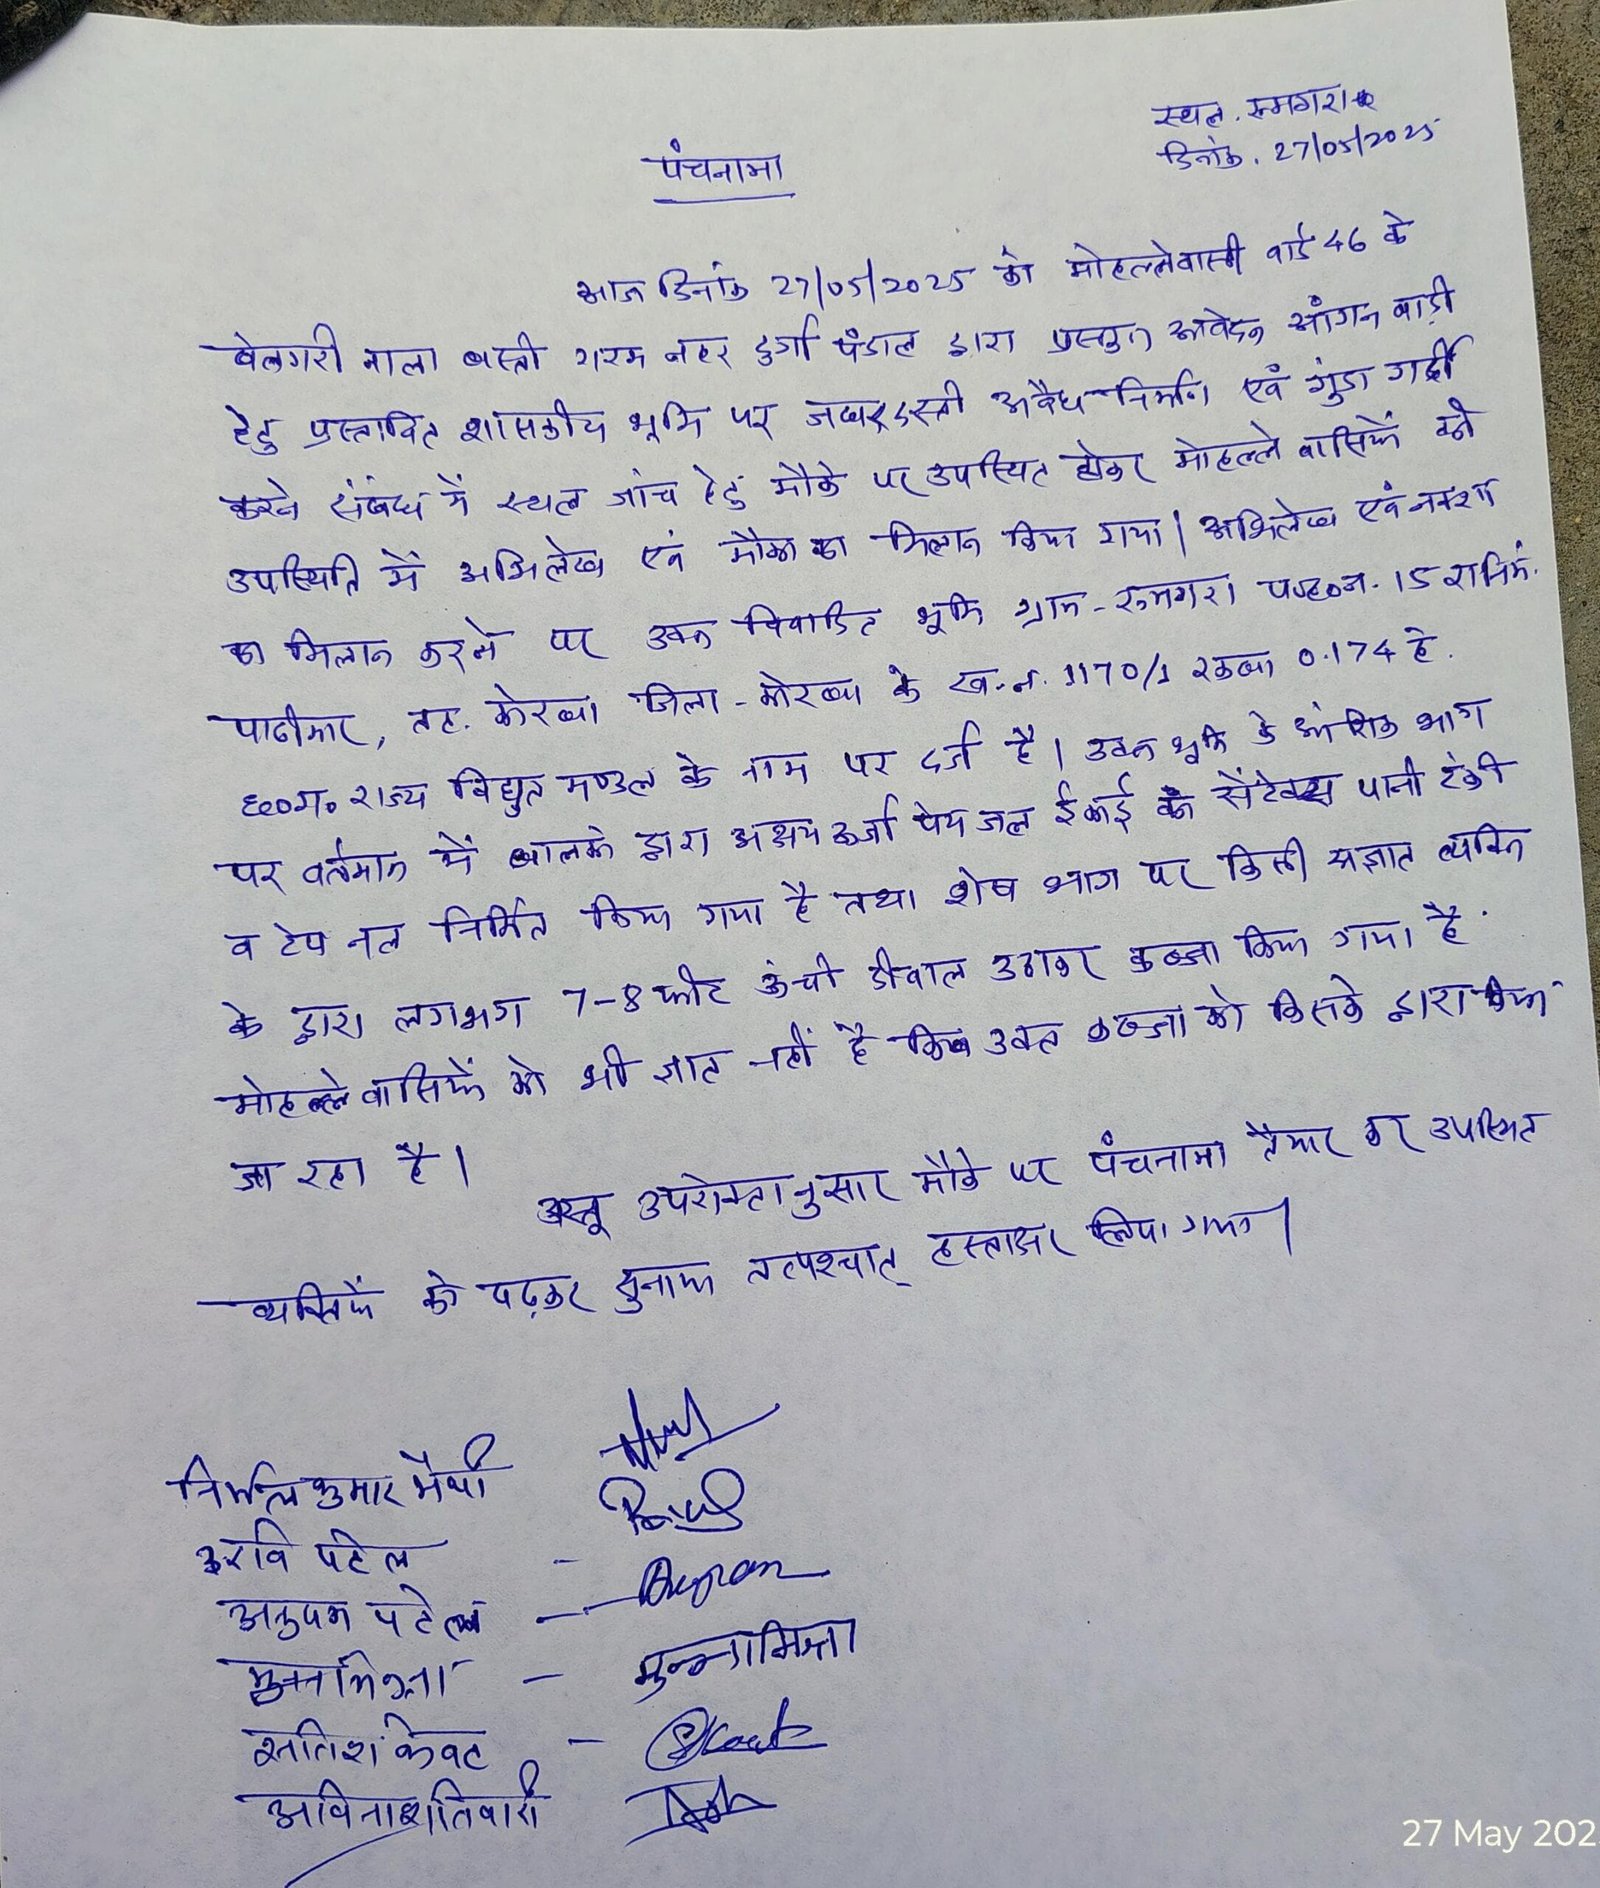 स्थल. रूमगरा
दिनांक. 27/05/2025
पंचनामा
आज दिनांक 27/05/2025 को मोहल्लेवासी वार्ड 46 के
बेलगरी नाला बस्ती गरम नहर दुर्गा पंडाल द्वारा प्रस्तुत आवेदन आंगन बाड़ी
हेतु प्रस्तावित शासकीय भूमि पर जबरदस्ती अवैध निर्माण एवं गुंडा गर्दी
करने संबंध में स्थल जांच हेतु मौके पर उपस्थित होकर मोहल्ले वासियों की
उपस्थिति में अभिलेख एवं मौका का मिलान किया गया। अभिलेख एवं नक्शा
का मिलान करने पर उक्त विवादित भूमि ग्राम - रूमगरा प०ह०न. 15 रा नि मं.
पाढीमार, तह. कोरबा जिला - कोरबा के ख.न. 1170/1 रकबा 0.174 हे.
छ०ग० राज्य विद्युत मण्डल के नाम पर दर्ज है। उक्त भूमि के आंशिक भाग
पर वर्तमान में बालको द्वारा अक्षय ऊर्जा पेय जल ईकाई का सेंटेक्स पानी टंकी
व टेप नल निर्मित किया गया है तथा शेष भाग पर किसी अज्ञात व्यक्ति
के द्वारा लगभग 7-8 फीट ऊंची दीवाल उठाकर कब्जा किया गया है.
मोहल्ले वासियों को भी ज्ञात नहीं है कि उक्त कब्जा को किसके द्वारा किया
जा रहा है।
अस्तु उपरोक्तानुसार मौके पर पंचनामा तैयार कर उपस्थित
व्यक्तियों को पढ़कर सुनाया तत्पश्चात् हस्ताक्षर लिया गया।
निर्मल कुमार
रवि पटेल -
अनुपम पटेल - Anupam
-  मुन्नामिस्त्रा
सतिश केवट -
अविनाश तिवारी
27 May 202